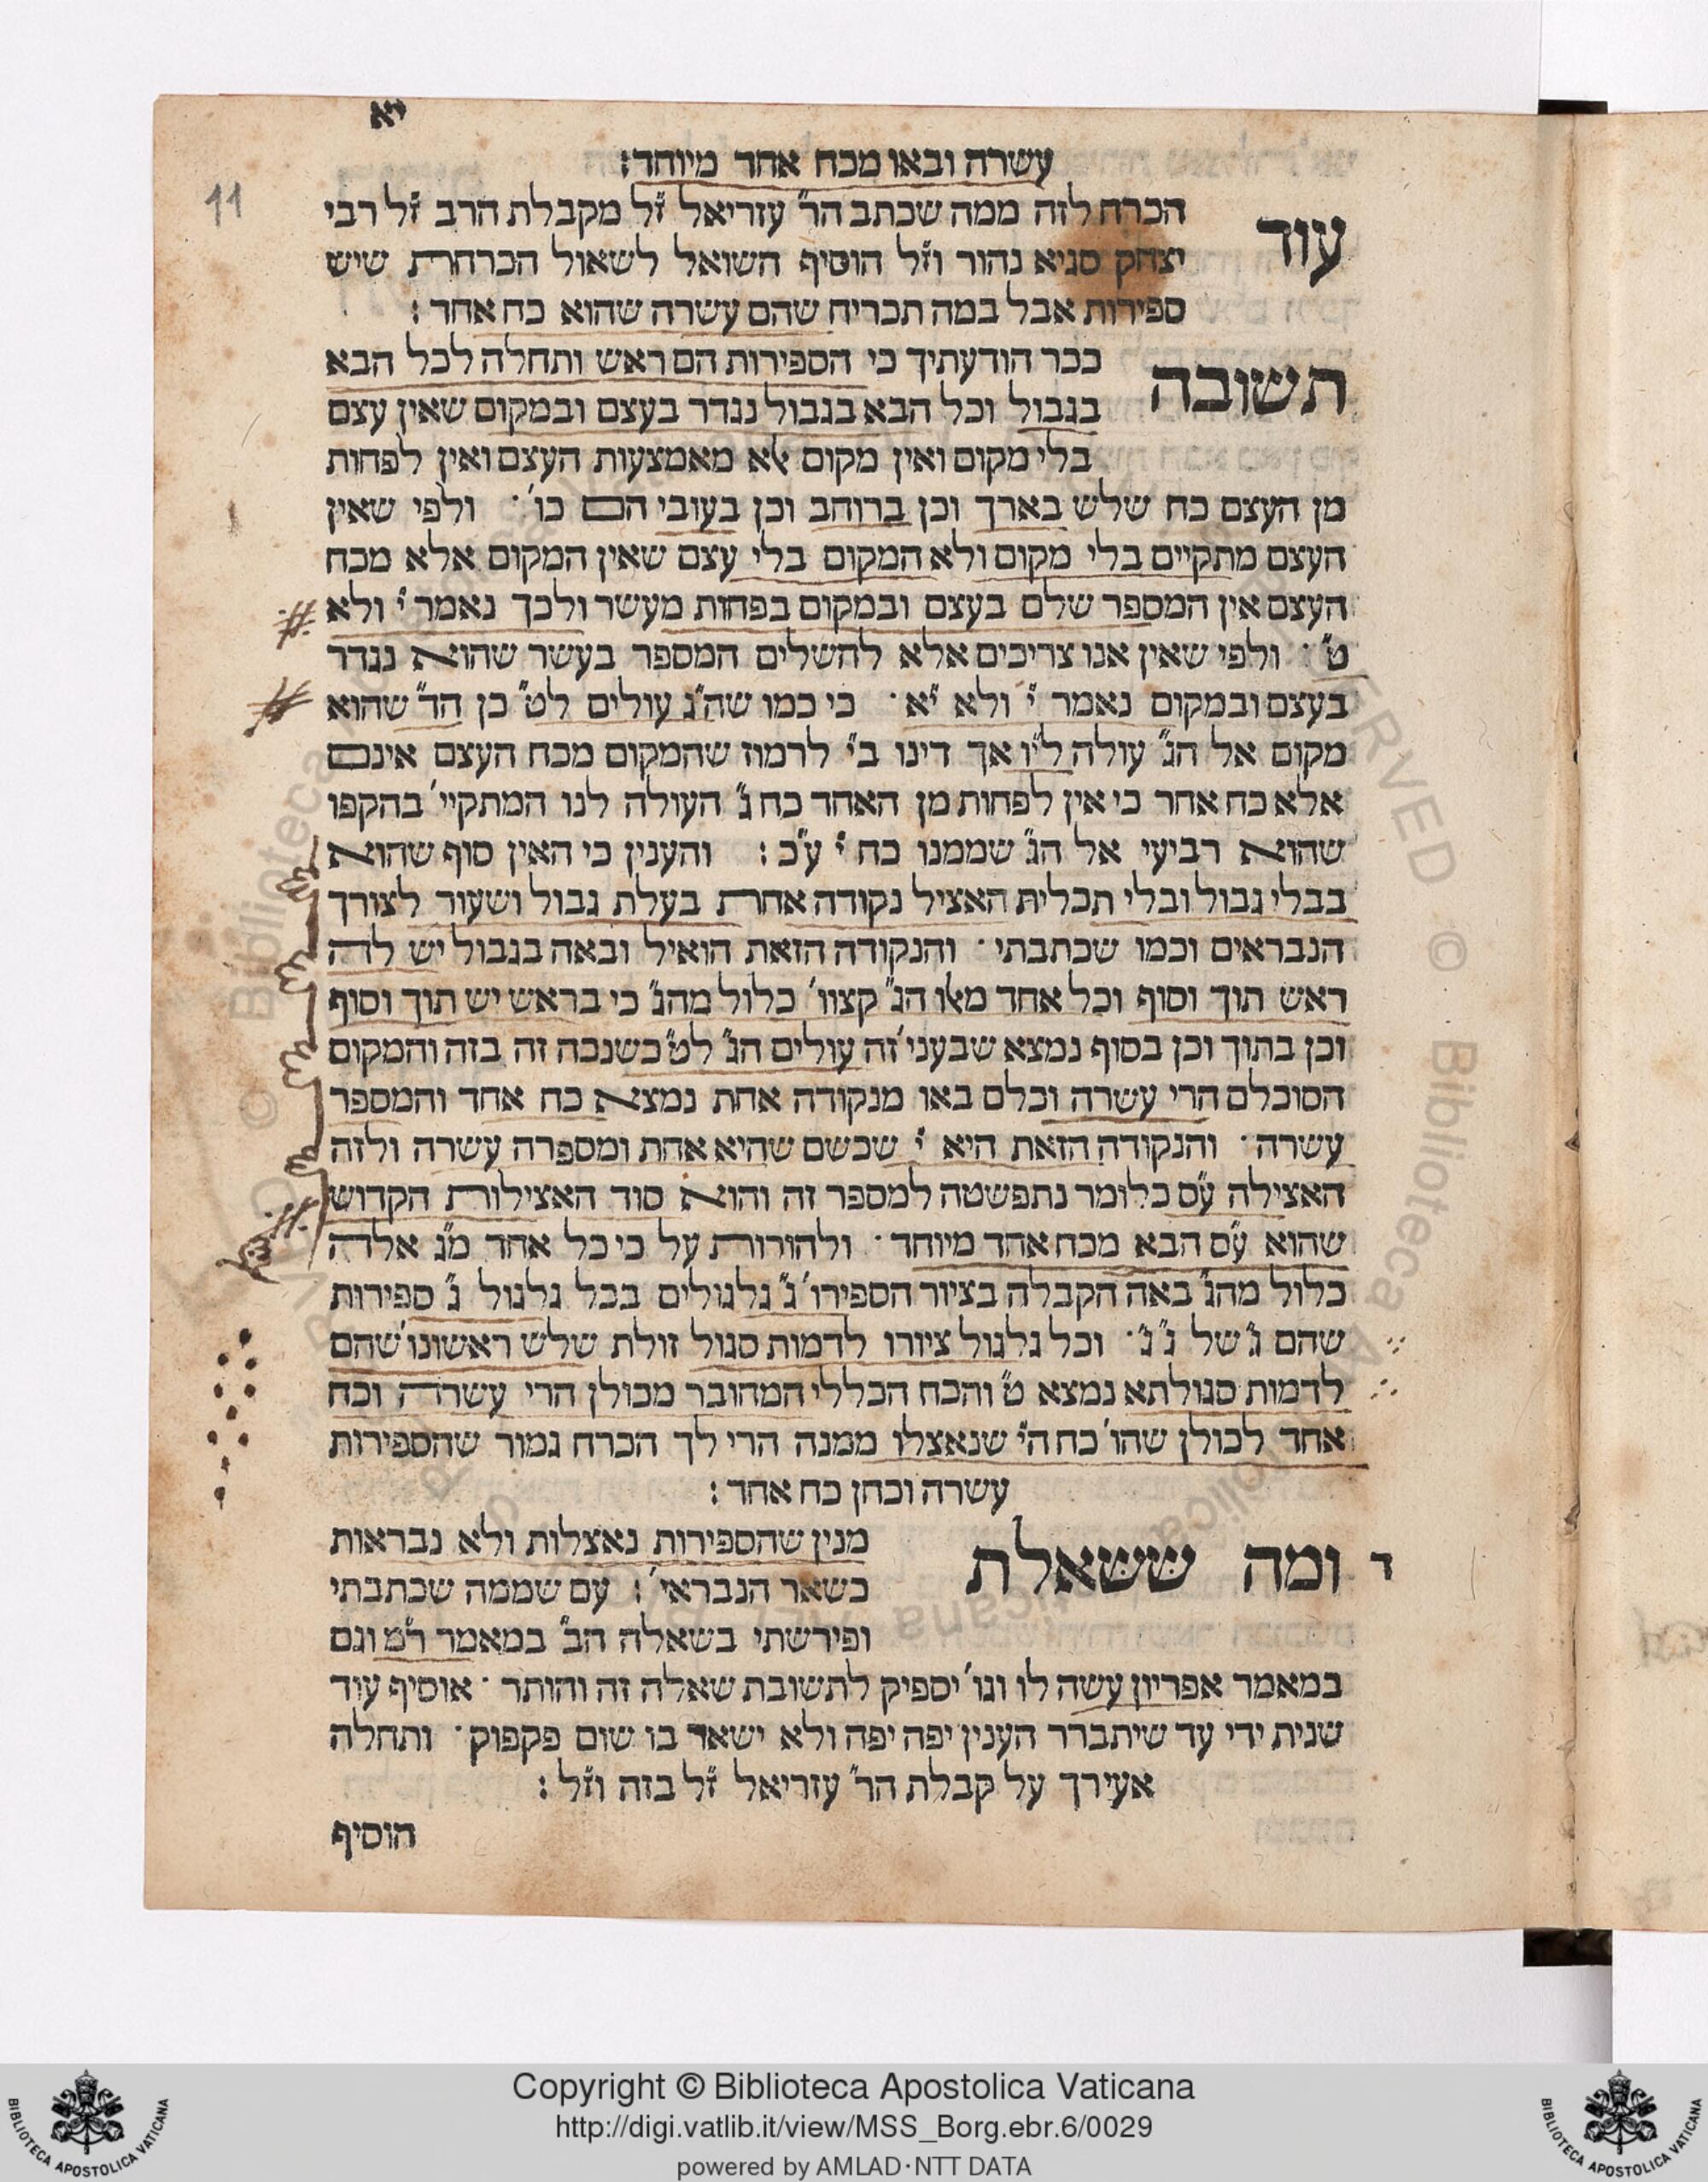 יא
11
עשרה ובאו מכח אחד מיוחד:
עוד הכרח לזה ממה שכתב הר" עזריאל ז"ל מקבלת הרב ז"ל רבי
יצחק סגיא נהור וז"ל הוסיף השואל לשאול הכרחת שיש
ספירות אבל במה תכריח שהם עשרה שהוא כח אחד:
תשובה ככר הודעתיך כי הספירות הם ראש ותחלה לכל הבא
בגבול וכל הבא בגבול נגדר בעצם ובמקום שאין עצם
בלי מקום ואין מקום אלא מאמצעות העצם ואין לפחות
מן העצם כח שלש בארך וכן ברוחב וכן בעובי הם כו'· ולפי שאין
העצם מתקיים בלי מקום ולא המקום בלי עצם שאין המקום אלא מכח
העצם אין המספר שלם בעצם ובמקום בפחות מעשר ולכך נאמר י" ולא
ט"· ולפי שאין אנו צריכים אלא להשלים המספר בעשר שהוא נגדר
בעצם ובמקום נאמר י" ולא י"א· כי כמו שה"ג עולים לט" כן הד" שהוא
מקום אל הג" עולה לי"ו אך דינו בי" לרמוז שהמקום מכח העצם אינם
אלא כח אחר כי אין לפחות מן האחד כח ג" העולה לנו המתקיי' בהקפו
שהוא רביעי אל הג" שממנו כח י" ע"כ: והענין כי האין סוף שהוא
בבלי גבול ובלי תכלית האציל נקודה אחרת בעלת גבול ושעור לצורך
הנבראים וכמו שכתבתי· והנקודה הזאת הואיל ובאה בגבול יש לה
ראש תוך וסוף וכל אחד מאלו הג" קצוו' כלול מהג" כי בראש יש תוך וסוף
וכן בתוך וכן בסוף נמצא שבעני' זה עולים הג" לט" כשנכה זה בזה והמקום
הסובלם הרי עשרה וכלם באו מנקודה אחת נמצא כח אחד והמספר
עשרה· והנקודה הזאת היא י" שכשם שהיא אחת ומספרה עשרה ולזה
האצילה ע"ס כלומר נתפשטה למספר זה והוא סוד האצילות הקדוש
שהוא ע"ס הבא מכח אחד מיוחד· ולהורות על כי כל אחד מג" אלה
כלול מהג" באה הקבלה בציור הספירו' ג" גלגולים בכל גלגול ג" ספירות
שהם ג" של ג" ג"· וכל גלגול ציורו לדמות סגול זולת שלש ראשונו' שהם
לדמות סגולתא נמצא ט" והכח הכללי המחובר מכולן הרי עשרה וכח
אחד לכולן שהו' כח הי" שנאצלו ממנה הרי לך הכרח גמור שהספירות
עשרה וכחן כח אחד:
ד ומה ששאלת מנין שהספירות נאצלות ולא נבראות
כשאר הנבראי': עם שממה שכתבתי
ופירשתי בשאלה הב" במאמר וגם
במאמר אפריון עשה לו וגו' יספיק לתשובת שאלה זה והותר· אוסיף עוד
שנית ידי עד שיתברר הענין יפה יפה ולא ישאר בו שום פקפוק· ותחלה
אעירך על קבלת הר" עזריאל ז"ל בזה וז"ל:
הוסיף
Copyright © Biblioteca Apostolica Vaticana
http://digi.vatlib.it/view/MSS_Borg.ebr.6/0029
powered by AMLAD·NTT DATA
BIBLIOTECA APOSTOLICA VATICANA
BIBLIOTECA APOSTOLICA VATICANA